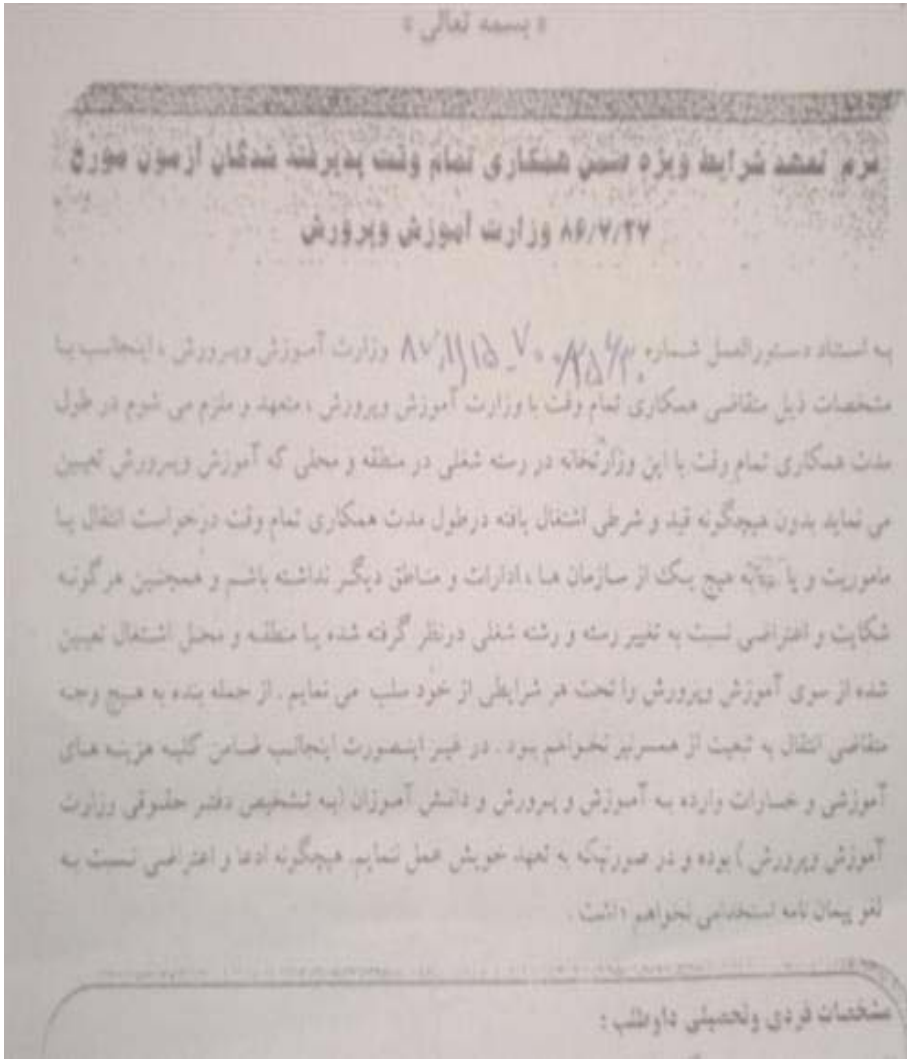 « بسمه تعالی »
فرم تعهد شرایط ویژه ضمن همکاری تمام وقت پذیرفته شدگان آزمون مورخ
۸۶/۷/۲۷ وزارت آموزش وپرورش
به استناد دستورالعمل شماره وزارت آموزش وپرورش ، اینجانب با
مشخصات ذیل متقاضی همکاری تمام وقت با وزارت آموزش وپرورش ، متعهد و ملزم می شوم در طول
مدت همکاری تمام وقت با این وزارتخانه در رسته شغلی در منطقه و محلی که آموزش وپرورش تعیین
می نماید بدون هیچگونه قید و شرطی اشتغال یافته درطول مدت همکاری تمام وقت درخواست انتقال یا
ماموریت و یا هیچ یک از سازمان ها ، ادارات و مناطق دیگر نداشته باشم و همچنین هرگونه
شکایت و اعتراضی نسبت به تغییر رسته و رشته شغلی درنظر گرفته شده یا منطقه و محل اشتغال تعیین
شده از سوی آموزش وپرورش را تحت هر شرایطی از خود سلب می نمایم . از جمله بنده به هیچ وجه
متقاضی انتقال به تبعیت از همسرنیز نخواهم بود . در غیر اینصورت اینجانب ضامن کلیه هزینه های
آموزشی و خسارات وارده به آموزش و پرورش و دانش آموزان (به تشخیص دفتر حقوقی وزارت
آموزش وپرورش ) بوده و در صورتیکه به تعهد خویش عمل ننمایم هیچگونه ادعا و اعتراضی نسبت به
لغو پیمان نامه استخدامی نخواهم داشت .
مشخصات فردی وتحصیلی داوطلب :